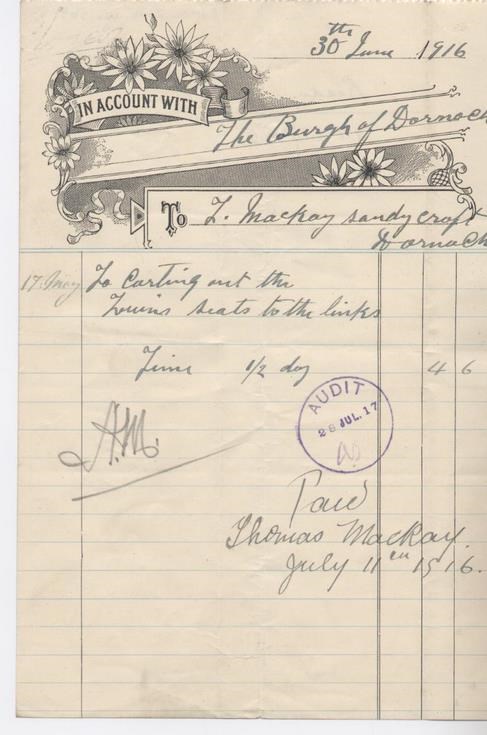 30th June 1916
IN ACCOUNT WITH
The Burgh of Dornoch
To T. Mackay Sandycroft
Dornoch
17 May To Carting out the
Towns seats to the links
Time 1/2 day 4 6
AUDIT
28 JUL. 17
A.M.
Paid
Thomas Mackay.
July 11th 1916.